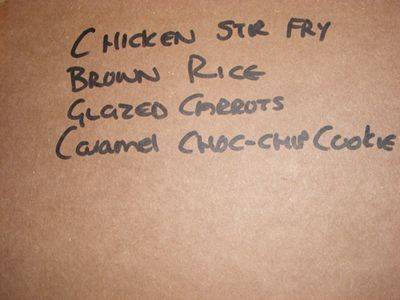 CHICKEN STIR FRY
BROWN RICE
GLAZED CARROTS
Caramel CHOC-CHIP COOKIE